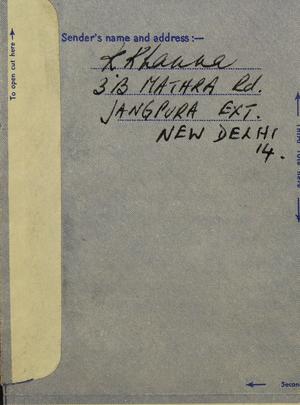 To open cut here
Sender's name and address :—
K Khanna
3'B MATHRA Rd.
JANGPURA EXT.
NEW DELHI
14.
Secon